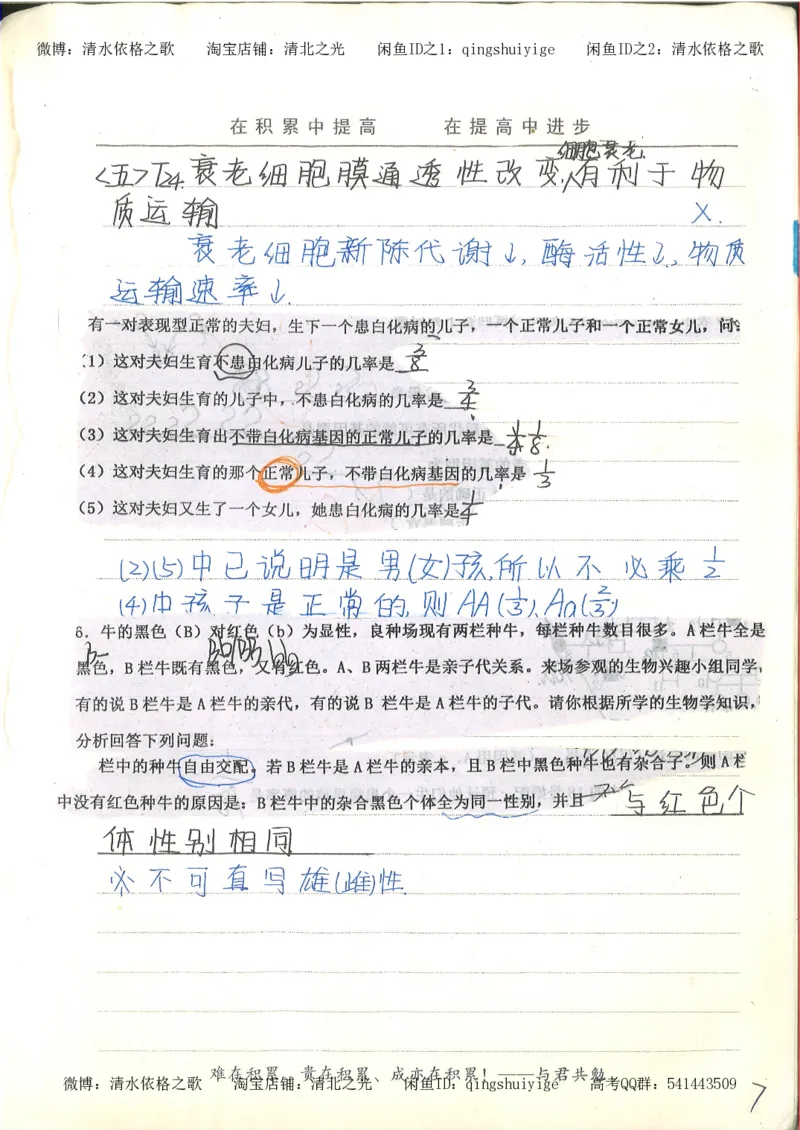 微博：清水依格之歌 淘宝店铺：清北之光 闲鱼ID之1：qingshuiyige 闲鱼ID之2：清水依格之歌
在积累中提高 在提高中进步
细胞衰老
<五>T24.衰老细胞膜通透性改变,有利于物
质运输 X.
衰老细胞新陈代谢↓,酶活性↓,物质
运输速率↓.
有一对表现型正常的夫妇，生下一个患白化病的儿子，一个正常儿子和一个正常女儿，问：
(1）这对夫妇生育不患白化病儿子的几率是 3/8
（2）这对夫妇生育的儿子中，不患白化病的几率是 3/4
（3）这对夫妇生育出不带白化病基因的正常儿子的几率是 1/8.
（4）这对夫妇生育的那个正常儿子，不带白化病基因的几率是 1/3
（5）这对夫妇又生了一个女儿，她患白化病的几率是 1/4
(2)(5)中已说明是男(女)孩,所以不必乘1/2
(4)中孩子是正常的,则AA(1/3),Aa(2/3)
6．牛的黑色（B）对红色（b）为显性，良种场现有两栏种牛，每栏种牛数目很多。A栏牛全是
B_ BB Bb bb
黑色，B栏牛既有黑色，又有红色。A、B两栏牛是亲子代关系。来场参观的生物兴趣小组同学，
有的说B栏牛是A栏牛的亲代，有的说B 栏牛是A栏牛的子代。请你根据所学的生物学知识，
分析回答下列问题：
栏中的种牛自由交配。若B栏牛是A栏牛的亲本，且B栏中黑色种牛也有杂合子。则A栏
中没有红色种牛的原因是：B栏牛中的杂合黑色个体全为同一性别，并且 与红色个
体性别相同
必不可直写雄(雌)性.
难在积累、贵在积累、成亦在积累！——与君共勉
微博：清水依格之歌 淘宝店铺：清北之光 闲鱼ID：qingshuiyige 高考QQ群：541443509
7